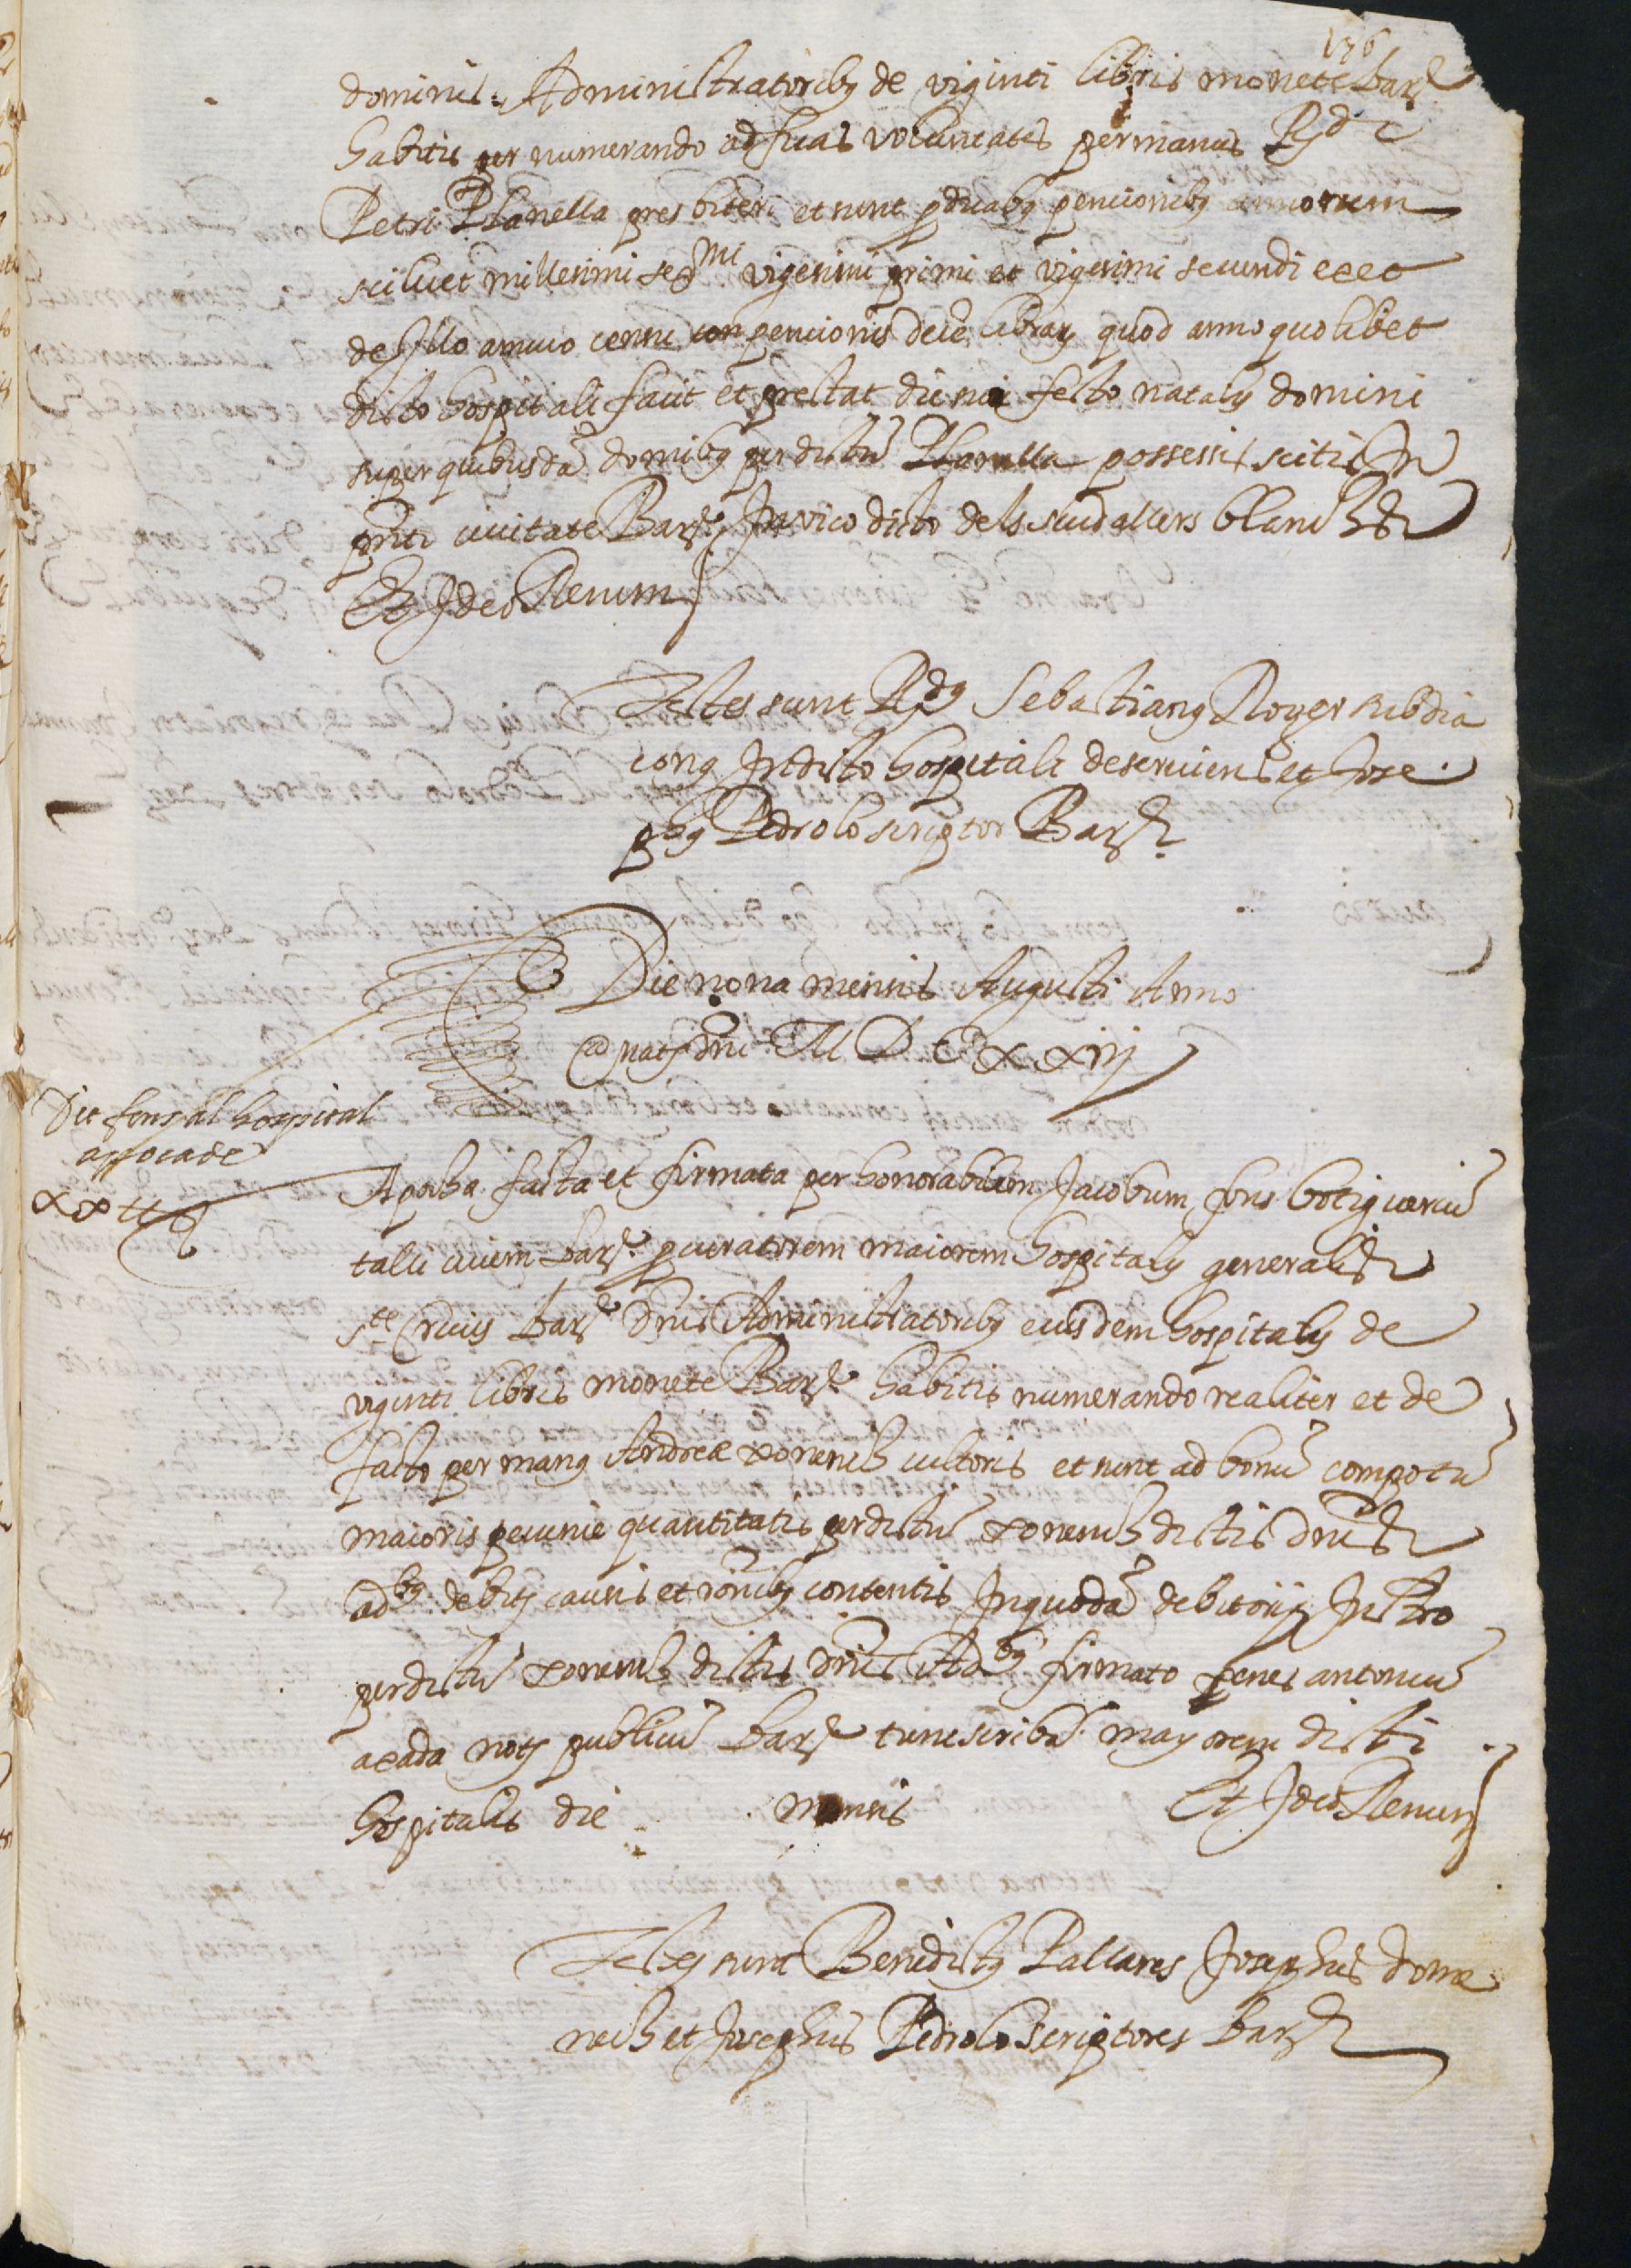 176
dominis Administratoribus de viginti libris monete Barne
habitis per numerando ad suas voluntates per manus Rdi
Petri Planella presbiteri et sunt pro duabus pencionibus annorum
scilicet millesimi sexmi vigesimi primi et vigesimi secundi ex et
de Illo annuo censu seu pencionis dece librarum quod anno quolibet
dicto hospitali facit et prestat die seu festo natalis domini
super quibusda domibus per dictu Planella possessis scitis In
pnti civitate Barne In vico dicto dels scudallers blanchs
Et Ideo Renum
Testes sunt Rdus Sebastianus Roger subdia
conus In dicto hospitali deserviens et Jose
phus Pedrolo scriptor Barne
Die nona mensis Augusti Anno
a nate dni M D C x x iij
Dit fons al hospital
appocade
xx ll
Apocha facta et firmata per honorabilem Jacobum fons botigueriu
talli civem barne procuratorem maiorem hospitalis generalis
Ste Crucis barne dnis Administratoribus eiusdem hospitalis de
viginti libris monete Barne habitis numerando realiter et de
facto per manus Andree Domenech cultoris et sunt ad bonu compotu
maioris pecunie quantitatis per dictu Domenech dictis dnis
adbus debitis causis et ronibus contentis In quoda debitorij Instro
per dictu Domenech dictis dnis Adbus firmato penes antoniu
axada notm publicu barne tunc scriba mayorem dicti
hospitalis die mensis Et Ideo Renum
Testes sunt Benedictus Pallares Josephus dome
nech et Josephus Pedrolo scriptores barne